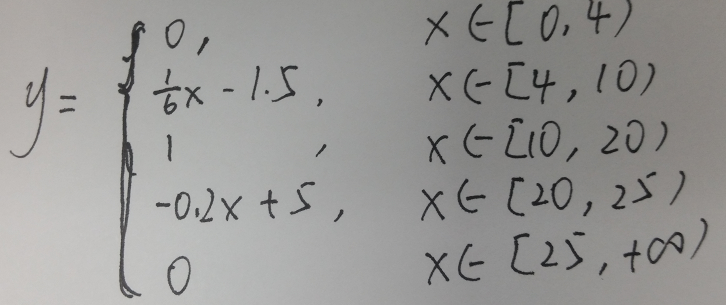 y = { 0, x ∈ [0, 4)
1/6 x - 1.5, x ∈ [4, 10)
1, x ∈ [10, 20)
-0.2x + 5, x ∈ [20, 25)
0 x ∈ [25, +∞)